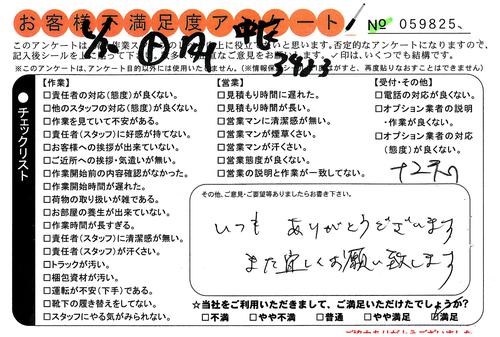 お客様不満足度アンケート
No 059825
【作業】
□責任者の対応(態度)が良くない。
□他のスタッフの対応(態度)が良くない。
□作業を見ていて不安がある。
□責任者(スタッフ)に好感が持てない。
□お客様への挨拶が出来ていない。
□ご近所への挨拶・気遣いが無い。
□作業開始前の内容確認がなかった。
□作業開始時間が遅れた。
□荷物の取り扱いが雑である。
□お部屋の養生が出来ていない。
□作業時間が長すぎる。
□責任者(スタッフ)に清潔感が無い。
□責任者(スタッフ)が汗くさい。
□トラックが汚い。
□梱包資材が汚い。
□運転が不安(下手)である。
□靴下の履き替えをしてない。
□スタッフにやる気がみられない。
【営業】
□見積もり時間に遅れた。
□見積もり時間が長い。
□営業マンに清潔感が無い。
□営業マンが煙草くさい。
□営業マンが汗くさい。
□営業態度が良くない。
□営業の説明と作業が一致してない。
【受付・その他】
□電話の対応が良くない。
□オプション業者の説明
・作業が良くない。
□オプション業者の対応
(態度)が良くない。
●チェックリスト
その他、ご意見・ご要望等ありましたらお書き下さい。
いつも ありがとうございます
また宜しくお願い致します
☆当社をご利用いただきまして、ご満足いただけたでしょうか?
□不満 □やや不満 □普通 □やや満足 □満足
ご協力ありがとうございました